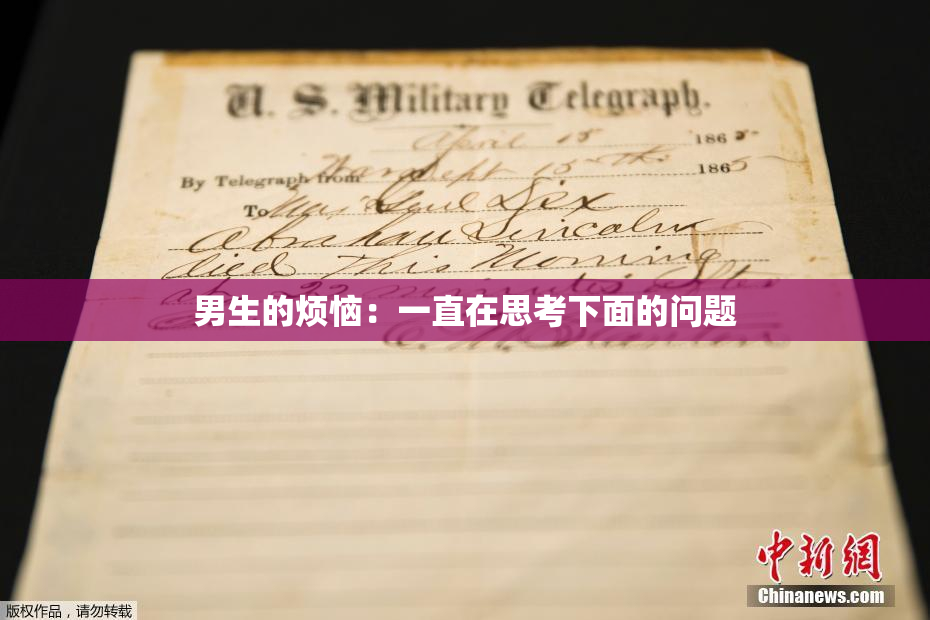 U. S. Military Telegraph.
April 15 1865
By Telegraph from War Dept 15th 1865
To Maj Genl Dix
Abraham Lincoln
died This Morning
at 22 minutes after
男生的烦恼：一直在思考下面的问题
中新網
Chinanews.com
版权作品，请勿转载